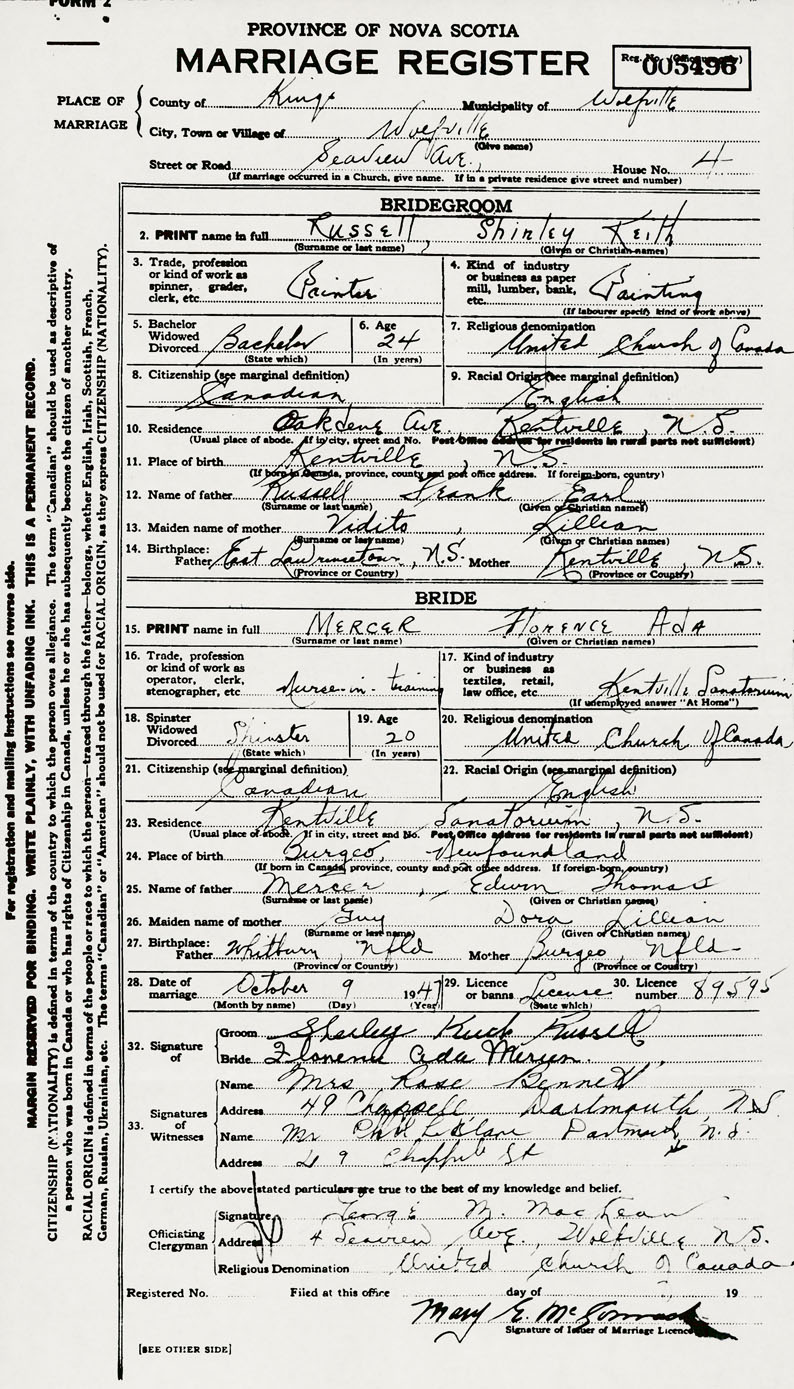 FORM 2
PROVINCE OF NOVA SCOTIA
MARRIAGE REGISTER
Reg. No. (Office use only) 005496
PLACE OF MARRIAGE
County of Kings Municipality of Wolfville
City, Town or Village of Wolfville
(Give name)
Street or Road Seaview Ave., House No. 4
(If marriage occurred in a Church, give name. If in a private residence give street and number)
BRIDEGROOM
2. PRINT name in full Russell, Shirley Keith
(Surname or last name) (Given or Christian names)
3. Trade, profession or kind of work as spinner, grader, clerk, etc. Painter
4. Kind of industry or business as paper mill, lumber, bank, etc. Painting
(If labourer specify kind of work above)
5. Bachelor Widowed Divorced Bachelor
(State which)
6. Age 24
(In years)
7. Religious denomination United Church of Canada
8. Citizenship (see marginal definition) Canadian
9. Racial Origin (see marginal definition) English
10. Residence Oakdene Ave. Kentville, N.S.
(Usual place of abode. If in city, street and No. Post Office address for residents in rural parts not sufficient)
11. Place of birth Kentville, N.S.
(If born in Canada, province, county and post office address. If foreign-born, country)
12. Name of father Russell Frank Earl
(Surname or last name) (Given or Christian names)
13. Maiden name of mother Vidito, Lillian
(Surname or last name) (Given or Christian names)
14. Birthplace: Father East Lawrencetown, N.S. Mother Kentville, N.S.
(Province or Country) (Province or Country)
BRIDE
15. PRINT name in full MERCER Florence Ada
(Surname or last name) (Given or Christian names)
16. Trade, profession or kind of work as operator, clerk, stenographer, etc Nurse-in-training
17. Kind of industry or business as textiles, retail, law office, etc. Kentville Sanatorium
(If unemployed answer "At Home")
18. Spinster Widowed Divorced Spinster
(State which)
19. Age 20
(In years)
20. Religious denomination United Church of Canada
21. Citizenship (see marginal definition) Canadian
22. Racial Origin (see marginal definition) English
23. Residence Kentville Sanatorium, N.S.
(Usual place of abode. If in city, street and No. Post Office address for residents in rural parts not sufficient)
24. Place of birth Burgeo, Newfoundland
(If born in Canada, province, county and post office address. If foreign-born, country)
25. Name of father Mercer, Edwin Thomas
(Surname or last name) (Given or Christian names)
26. Maiden name of mother Guy Dora Lillian
(Surname or last name) (Given or Christian names)
27. Birthplace: Father Whitburn, Nfld Mother Burgeo, Nfld
(Province or Country) (Province or Country)
28. Date of marriage October 9 1947
(Month by name) (Day) (Year)
29. Licence or banns License
(State which)
30. Licence number 89595
32. Signature of
Groom Shirley Keith Russell
Bride Florence Ada Mercer
33. Signatures of Witnesses
Name Mrs Rose Bennett
Address 49 Chappell Dartmouth N.S.
Name Mr Dartmouth, N.S.
Address 49 Chappell St
I certify the above stated particulars are true to the best of my knowledge and belief.
Officiating Clergyman
Signature George M. MacLean
Address 4 Seaview Ave., Wolfville N.S.
Religious Denomination United Church of Canada
Registered No. Filed at this office day of 19
Mary E. McCormack
Signature of Issuer of Marriage Licence
[SEE OTHER SIDE]
For registration and mailing instructions see reverse side.
MARGIN RESERVED FOR BINDING. WRITE PLAINLY, WITH UNFADING INK. THIS IS A PERMANENT RECORD.
CITIZENSHIP (NATIONALITY) is defined in terms of the country to which the person owes allegiance. The term "Canadian" should be used as descriptive of
a person who was born in Canada or who has rights of Citizenship in Canada, unless he or she has subsequently become the citizen of another country.
RACIAL ORIGIN is defined in terms of the people or race to which the person—traced through the father—belongs, whether English, Irish, Scottish, French,
German, Russian, Ukrainian, etc. The terms "Canadian" or "American" should not be used for RACIAL ORIGIN, as they express CITIZENSHIP (NATIONALITY).